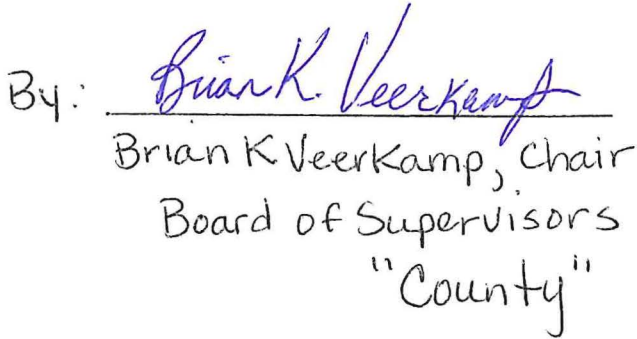 By: Brian K. Veerkamp
Brian K Veerkamp, Chair
Board of Supervisors
"County"